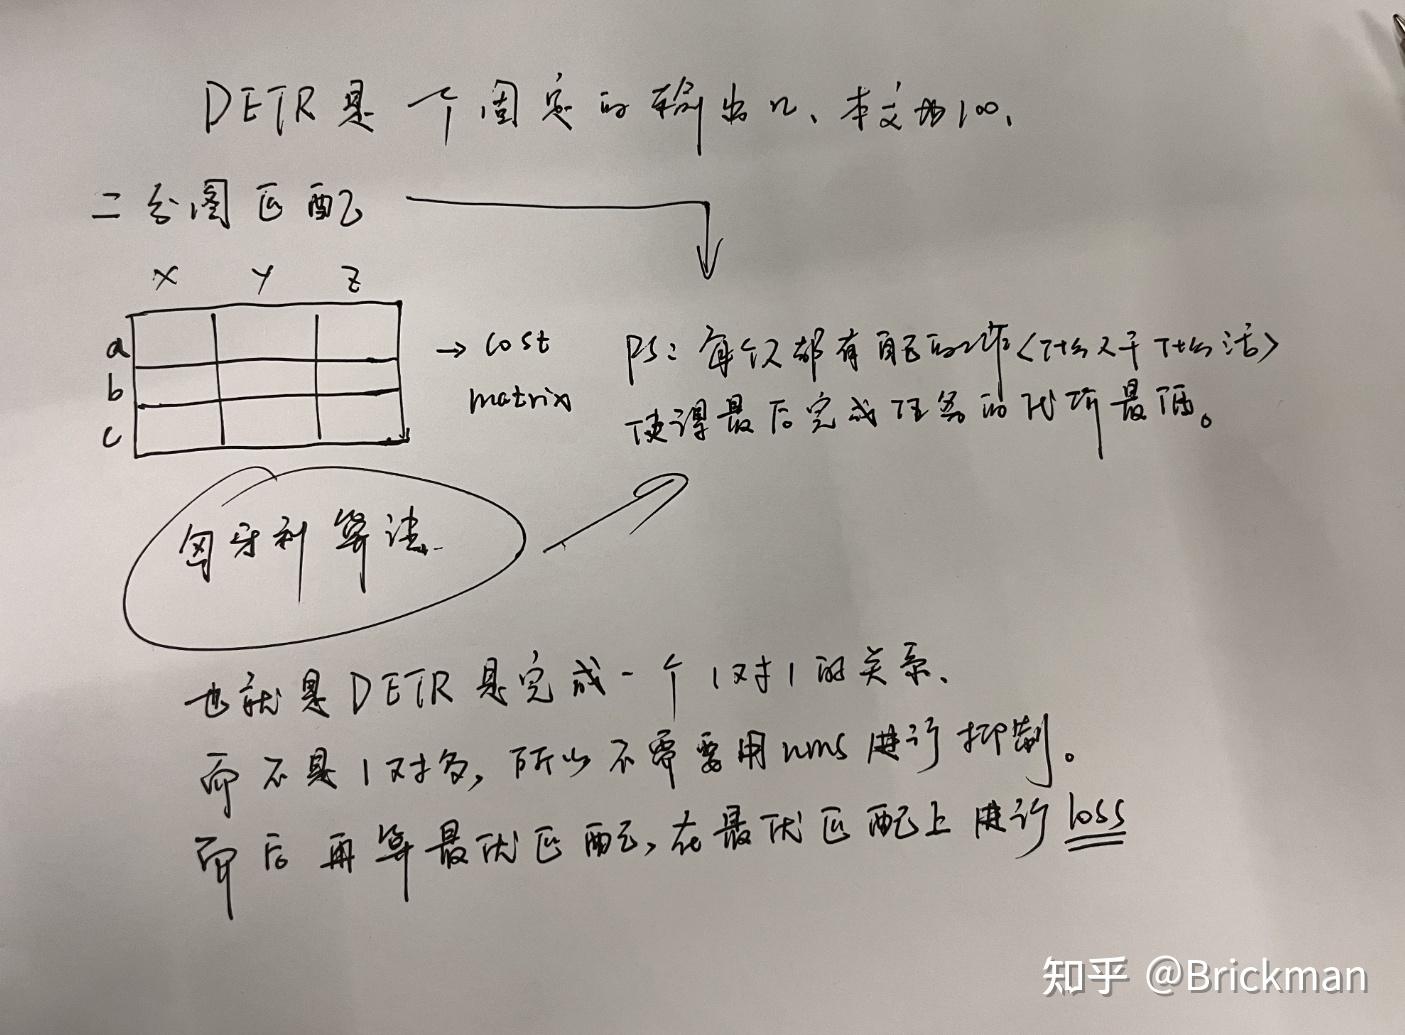 DETR是一个固定的输出n、本文为100.
二分图匹配
X Y Z
a
b
c
→ cost
matrix
PS: 每个人都有配的工作<什么人干什么活>
使得最后完成任务的代价最低。
匈牙利算法.
也就是DETR是完成一个1对1的关系、
而不是1对多, 所以不需要用nms进行抑制。
而后再算最优匹配, 在最优匹配上进行loss
知乎 @Brickman